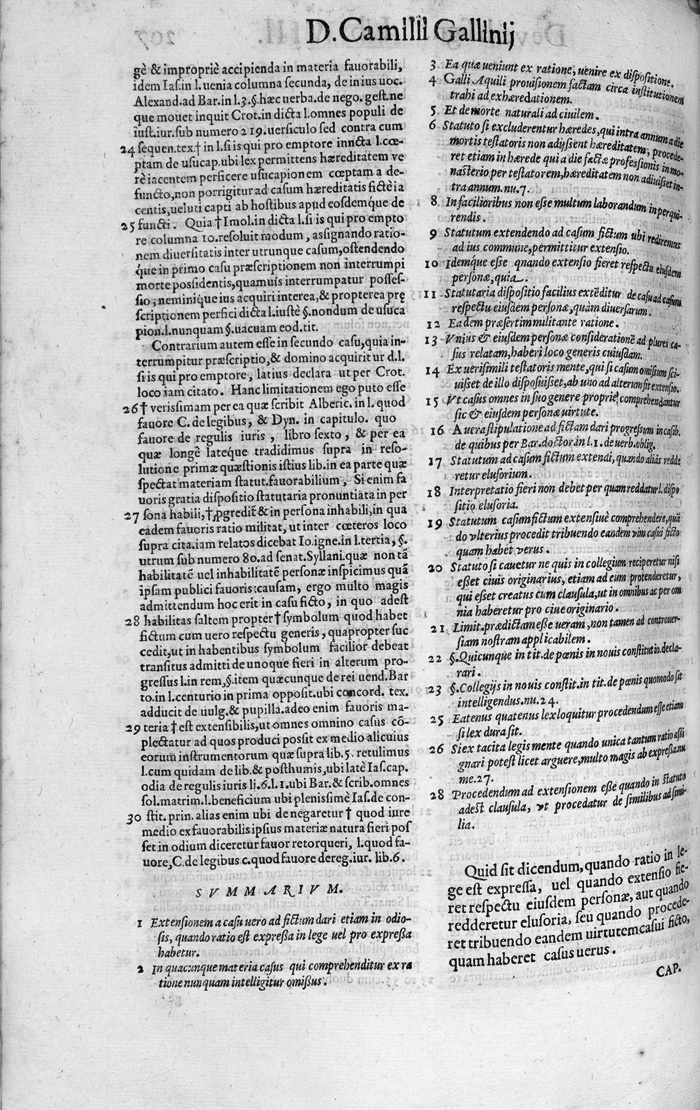 D. Camilli Gallinij
gè & impropriè accipienda in materia fauorabili,
idem Ias. in l. uenia columna secunda, de in ius uoc.
Alexand. ad Bar. in l. 3. §. hæc uerba. de nego. gest. ne
que mouet inquit Crot. in dicta l. omnes populi de
iust. iur. sub numero 219. uersiculo sed contra cum
24 sequen. tex. † in l. si is qui pro emptore inuicta l. cœ
ptam de usucap. ubi lex permittens hæreditatem ve
rè iacentem perficere usucapionem cœptam a de-
functo, non porrigitur ad casum hæreditatis fictè ia
centis, ueluti capti ab hostibus apud eosdemque de
25 functi. Quia † Imol. in dicta l. si is qui pro empto
re columna 10. resoluit modum, assignando ratio-
nem diuersitatis inter utrunque casum, ostendendo
que in primo casu præscriptionem non interrumpi
morte possidentis, quamuis interrumpatur posses-
sio, neminique ius acquiri interea, & propterea prę
scriptionem perfici dicta l. iustè §. nondum de usuca
pion. l. nunquam §. uacuam eod. tit.
Contrarium autem esse in secundo casu, quia in-
terrumpitur præscriptio, & domino acquiritur d. l.
si is qui pro emptore, latius declara ut per Crot.
loco iam citato. Hanc limitationem ego puto esse
26 † verissimam per ea quæ scribit Alberic. in l. quod
fauore C. de legibus, & Dyn. in capitulo. quo
fauore de regulis iuris, libro sexto, & per ea
quæ longè lateque tradidimus supra in reso-
lutione primæ quæstionis istius lib. in ea parte quæ
spectat materiam statut. fauorabilium, Si enim fa
uoris gratia dispositio statutaria pronuntiata in per
27 sona habili, †, ꝓgredit̃ & in persona inhabili, in qua
eadem fauoris ratio militat, ut inter cœteros loco
supra cita. iam relatos dicebat Io. igne. in l. tertia, §.
utrum sub numero 80. ad senat. Syllani. quæ non tã
habilitatẽ uel inhabilitatẽ personæ inspicimus quã
ipsam publici fauoris: causam, ergo multo magis
admittendum hoc erit in casu ficto, in quo adest
28 habilitas saltem propter † symbolum quod habet
fictum cum uero respectu generis, quapropter suc
cedit, ut in habentibus symbolum facilior debeat
transitus admitti de uno que fieri in alterum pro-
gressus l. in rem, §. item quæcunque de rei uend. Bar
to. in l. centurio in prima opposit. ubi concord. tex.
adducit de uulg. & pupilla. adeo enim fauoris ma-
29 teria † est extensibilis, ut omnes omnino casus cõ-
plectatur ad quos produci possit ex medio alicuius
eorum instrumentorum quæ supra lib. 5. retulimus
l. cum quidam de lib. & posthumis, ubi latè Ias. cap.
odia de regulis iuris li. 6. l. 1. ubi Bar. & scrib. omnes
sol. matrim. l. beneficium ubi plenissimè Ias. de con-
30 stit. prin. alias enim ubi de negaretur † quod iure
medio ex fauorabilis ipsius materiæ natura fieri pos
set in odium diceretur fauor retorqueri, l. quod fa-
uore, C. de legibus c. quod fauore de reg. iur. lib. 6.
SVMMARIVM.
1 Extensionem a casu uero ad fictum dari etiam in odio-
sis, quando ratio est expressa in lege uel pro expressa
habetur.
2 In quacunque materia casus qui comprehenditur ex ra
tione nunquam intelligitur omissus.
3 Ea quæ ueniunt ex ratione, uenire ex dispositione.
4 Galli Aquili prouisionem factam circa institutionem
trahi ad exhæredationem.
5 Et de morte naturali ad ciuilem.
6 Statuto si excluderentur hæredes, qui intra annum a die
mortis testatoris non adijssent hæreditatem, procede-
ret etiam in hærede qui a die factæ professionis in mo-
nasterio per testatorem, hæreditatem non adiuisset in-
tra annum. nu. 7.
8 In facilioribus non esse multum laborandum in perqui-
rendis.
9 Statutum extendendo ad casum fictum ubi rediremus
ad ius commune, permittitur extensio.
10 Idemque esse quando extensio fieret respectu eiusdem
personæ, quia.
11 Statutaria dispositio facilius extẽditur de casu ad casum
respectu eiusdem personæ, quàm diuersarum.
12 Eadem præsertim militante ratione.
13 Vnius & eiusdem personæ consideratione ad plures ca-
sus relatam, haberi loco generis cuiusdam.
14 Ex uerisimili testatoris mente, qui si casum omissum sci-
uisset de illo disposuisset, ab uno ad alterum fit extensio.
15 Vt casus omnes in suo genere propriè, comprehendantur
sic & eiusdem personæ uirtute.
16 A uera stipulatione ad fictam dari progressum in casib.
de quibus per Bar. doctor in l. 1. de uerb. oblig.
17 Statutum ad casum fictum extendi, quando aliàs redde
retur elusorium.
18 Interpretatio fieri non debet per quam reddatur l. dispo
sitio elusoria.
19 Statutum casum fictum extensiuè comprehendere, quã
do vlterius procedit tribuendo eandem vim casui ficto
quam habet verus.
20 Statuto si cauetur ne quis in collegium reciperetur nisi
esset ciuis originarius, etiam ad eum protenderetur,
qui esset creatus cum clausula, ut in omnibus ac per om
nia haberetur pro ciue originario.
21 Limit. prædictam esse ueram, non tamen ad controuer-
siam nostram applicabilem.
22 §. Quicunque in tit. de pœnis in nouis constitut. io. decla-
rari.
23 §. Collegijs in nouis constit. in tit. de pœnis quomodo sit
intelligendus. nu. 24.
25 Eatenus quatenus lex loquitur procedendum esse etiam
si lex dura sit.
26 Si ex tacita legis mente quando unica tantum ratio assi
gnari potest licet arguere, multo magis ab expressa. nu
me. 27.
28 Procedendum ad extensionem esse quando in statuto
adest clausula, vt procedatur de similibus ad simi-
lia.
Quid sit dicendum, quando ratio in le-
ge est expressa, uel quando extensio fie-
ret respectu eiusdem personæ, aut quando
redderetur elusoria, seu quando procede-
ret tribuendo eandem uirtutem casui ficto,
quam haberet casus uerus.
CAP.